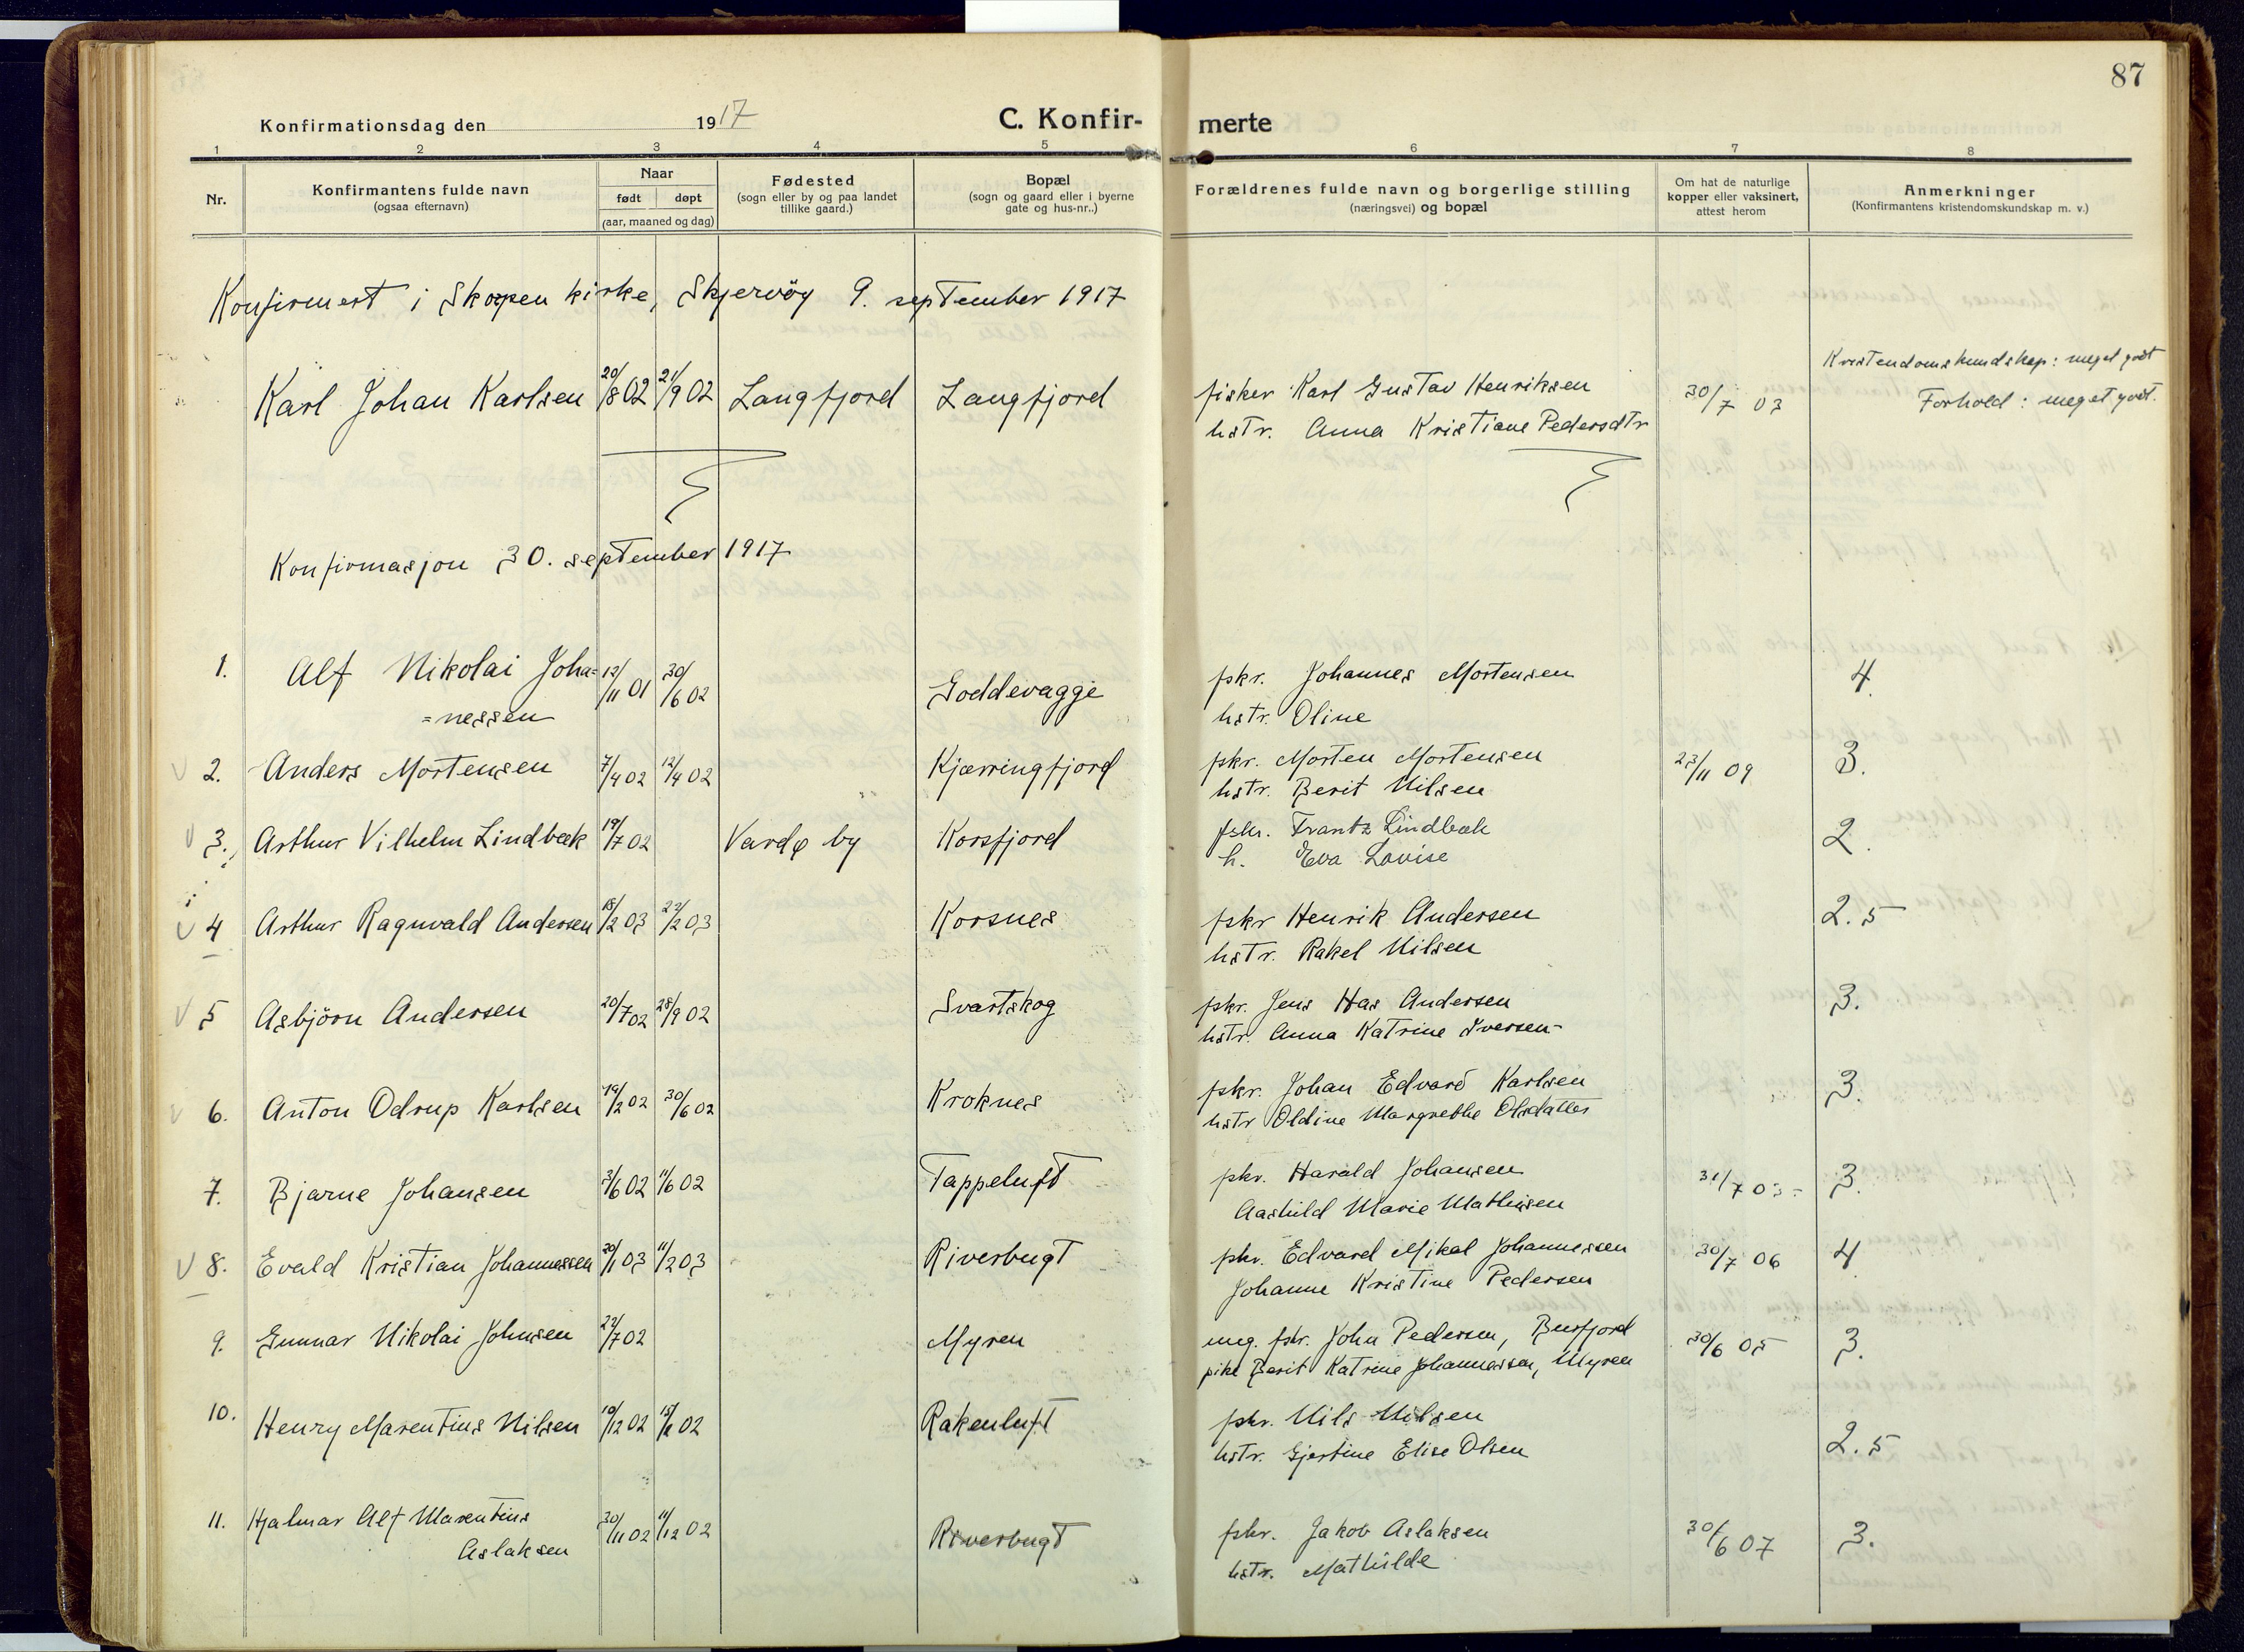 87
Konfirmationsdag den 1917 C. Konfir- merte
1 2 3 4 5 6 7 8
Nr.
Konfirmantens fulde navn
(ogsaa efternavn)
Naar
født døpt
(aar, maaned og dag)
Fødested
(sogn eller by og paa landet
tillike gaard.)
Bopæl
(sogn og gaard eller i byerne
gate og hus-nr..)
Forældrenes fulde navn og borgerlige stilling
(næringsvei) og bopæl
Om hat de naturlige
kopper eller vaksinert,
attest herom
Anmerkninger
(Konfirmantens kristendomskundskap m. v.)
Konfirmert i Skorpen kirke, Skjervöy 9. september 1917
Karl Johan Karlsen 20/8 02 21/9 02 Langfjord Langfjord
fisker Karl Gustav Henriksen
hstr. Anna Kristiane Pedersdtr
30/7 03
Kristendomskundskap: meget godt
Forhold: meget godt.
Konfirmasjon 30. september 1917
1. Alf Nikolai Joha=
=nessen
12/11 01 30/6 02 Goddevagge
fskr. Johannes Mortensen
hstr. Oline
4.
2. Anders Mortensen 7/4 02 12/4 02 Kjærringfjord
fskr. Morten Mortensen
hstr. Berit Nilsen
23/11 09 3.
3. Arthur Vilhelm Lindbæk 19/7 02 Vardø by Korsfjord
fskr. Frantz Lindbæk
h. Eva Lovise
2.
4 Arthur Ragnvald Andersen 18/2 03 22/2 03 Korsnes
fskr Henrik Andersen
hstr. Rakel Nilsen
2.5
5 Asbjörn Andersen 20/7 02 28/9 02 Svartskog
fskr. Jens Has Andersen
hstr. Anna Katrine Iversen-
3.
6. Anton Odrup Karlsen 19/2 02 30/6 02 Kroknes
fskr. Johan Edvard Karlsen
hstr Oldine Margrethe Olsdatter
3.
7. Bjarne Johansen 3/6 02 11/6 02 Tappeluft
fskr. Harald Johansen
Aashild Marie Mathisen
31/7 03- 3.
8. Evald Kristian Johannessen 20/1 03 11/2 03 Riverbugt
fskr. Edvard Mikal Johannessen
Johanne Kristine Pedersen
30/7 06 4
9. Gunnar Nikolai Johnsen 22/7 02 Myren
ung. fskr. John Pedersen, Burfjord
pike Berit Katrine Johannessen, Myren
30/6 05 3.
10. Henry Marentius Nilsen 10/12 02 02 Rakenluft
fskr. Nils Nilsen
hstr. Gjertine Elise Olsen
2.5
11. Hjalmar Alf Marentius
Aslaksen
30/11 02 11/12 02 Riverbugt
fskr. Jakob Aslaksen
hstr. Mathilde
30/6 07 3.